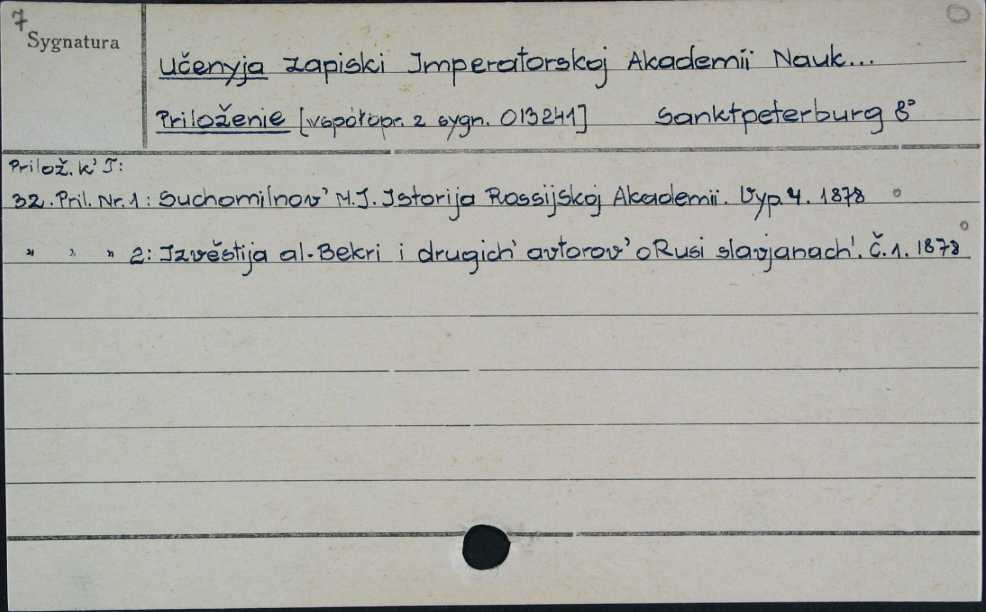 7
Sygnatura
Učenyja zapiski Imperatorskoj Akademii Nauk...
Priloženie [współopr. z sygn. 013241] Sanktpeterburg 8°
Prilož. k' T:
32. Pril. Nr. 1: Suchomilnov' M.J. Istorija Rossijskoj Akademii. Vyp. 4. 1878
" " " 2: Izvěstija al-Bekri i drugich' avtorov' o Rusi slavjanach'. Č. 1. 1878